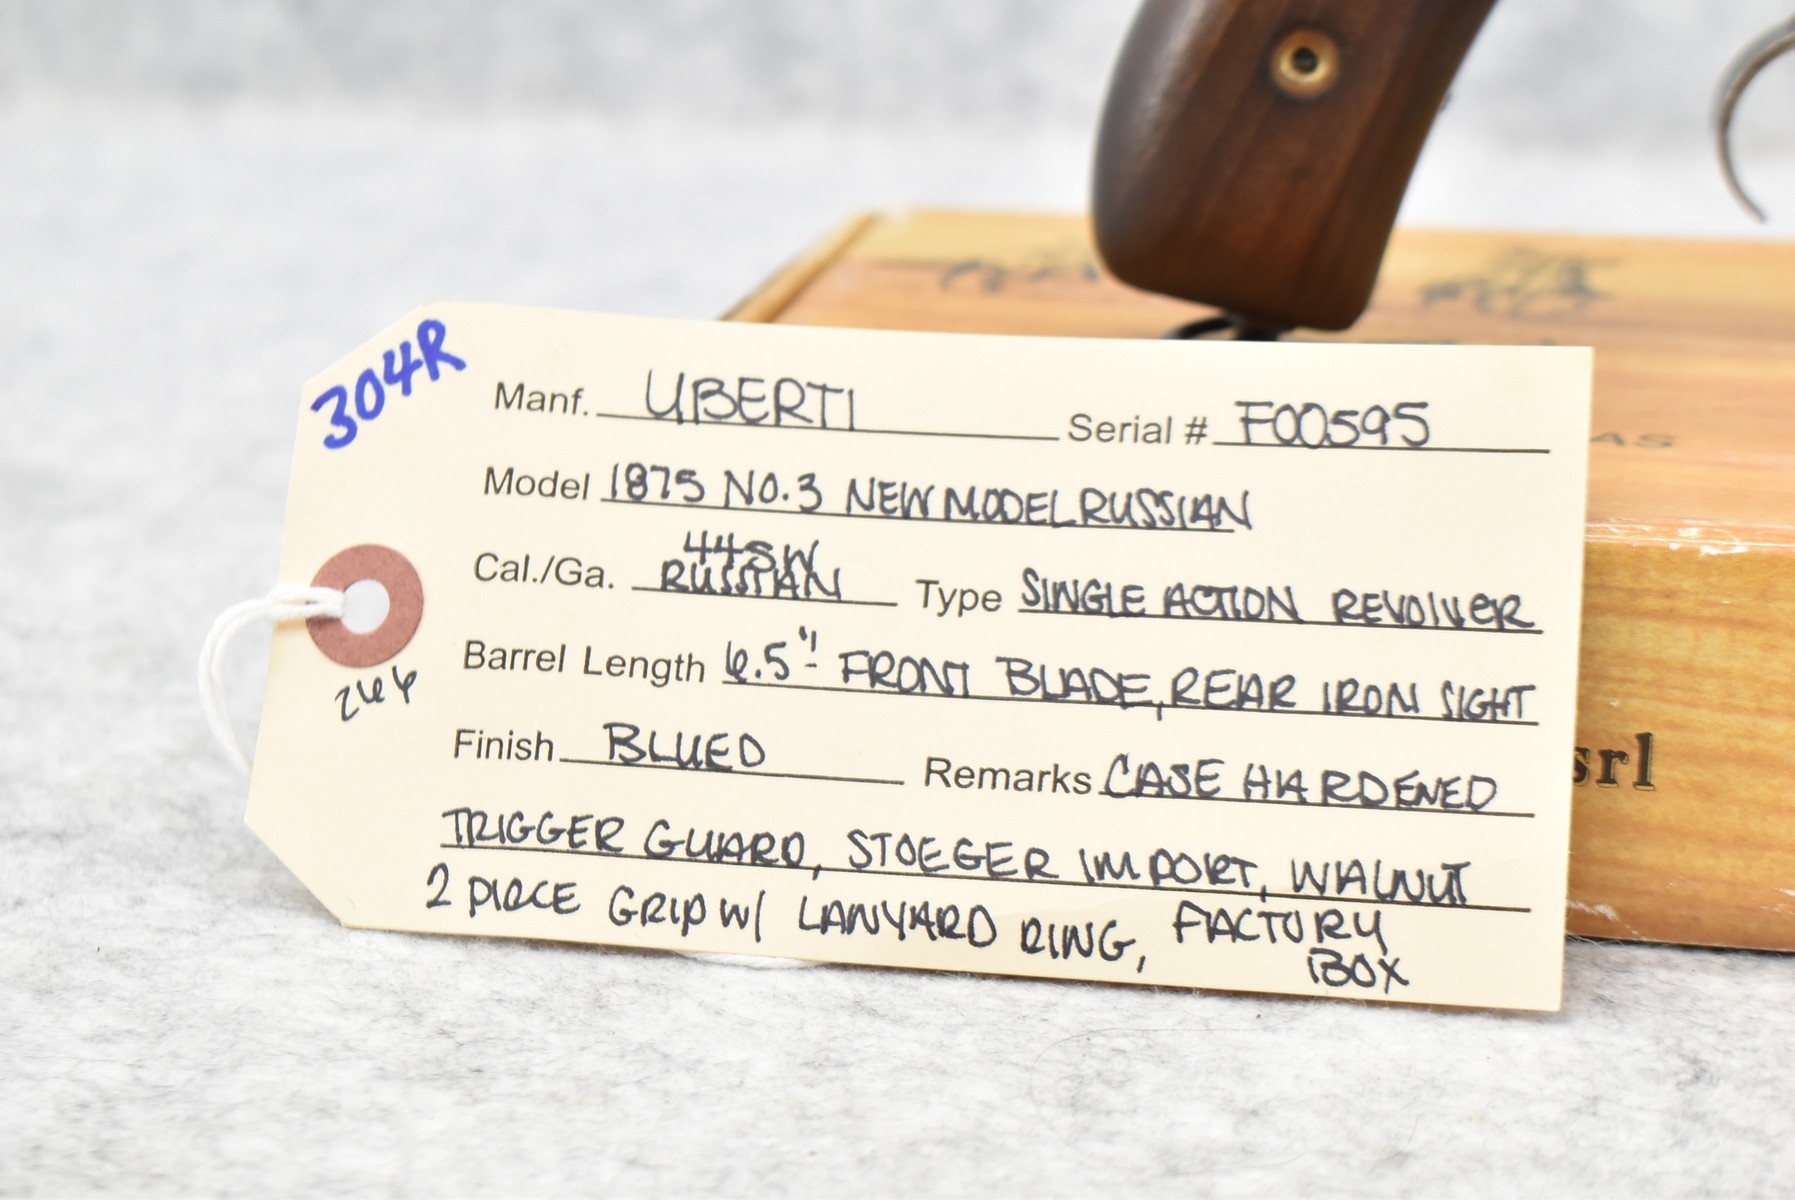 304R
Manf. UBERTI Serial # F00595
Model 1875 NO.3 NEW MODEL RUSSIAN
44SW
Cal./Ga. RUSSIAN Type SINGLE ACTION REVOLVER
Barrel Length 6.5"- FRONT BLADE, REAR IRON SIGHT
266
Finish BLUED Remarks CASE HARDENED
TRIGGER GUARD, STOEGER IMPORT, WALNUT
2 PIECE GRIP W/ LANYARD RING, FACTORY
BOX
srl